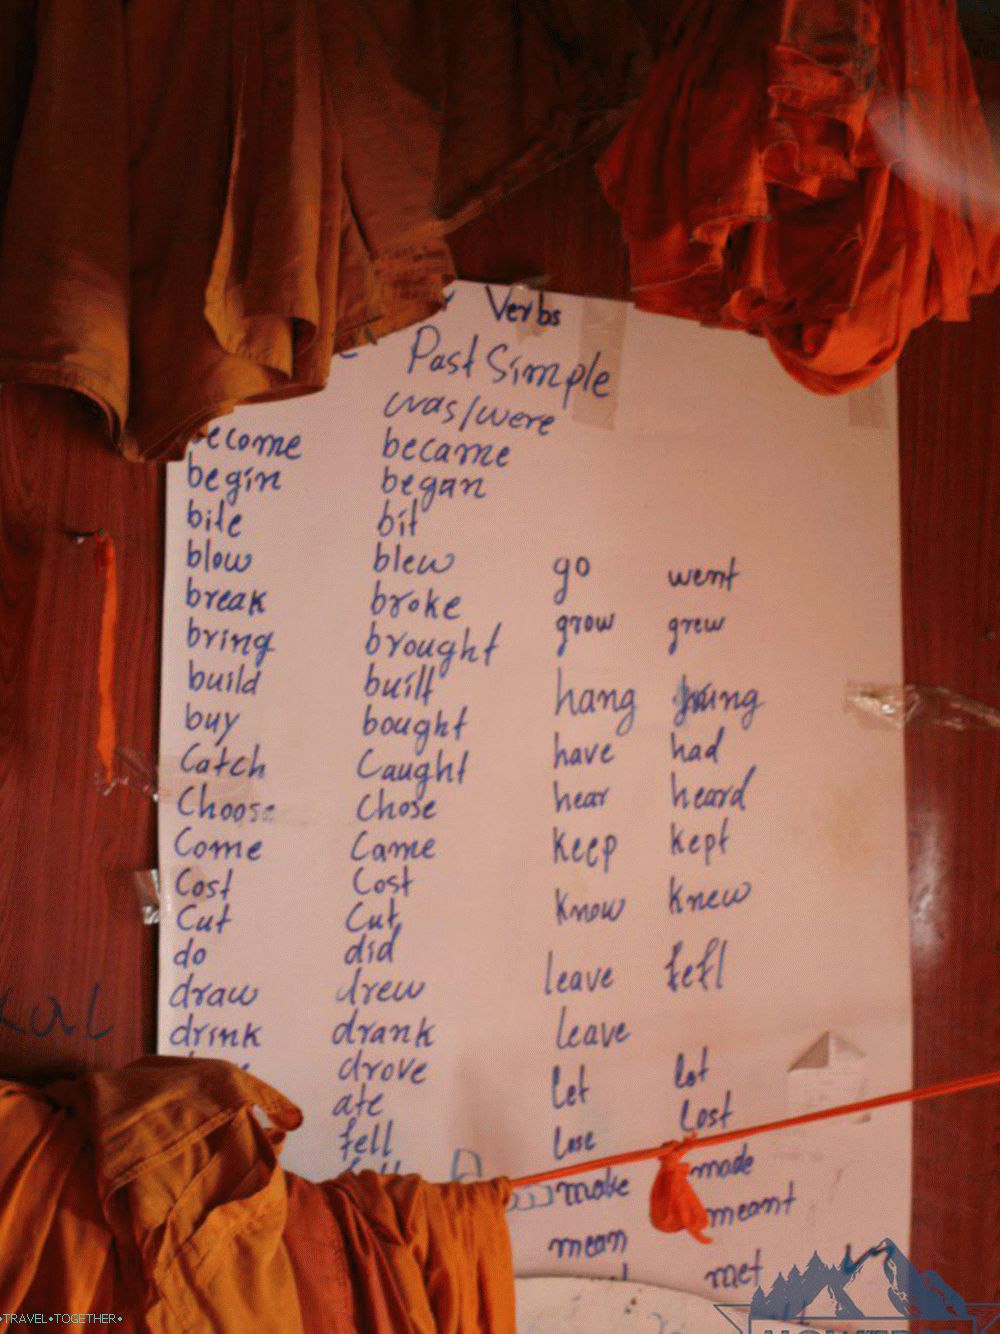 Verbs
Past Simple
was/were
become became
begin began
bite bit
blow blew
break broke
bring brought
build built
buy bought
Catch Caught
Choose Chose
Come Came
Cost Cost
Cut Cut
do did
draw drew
drink drank
drove
ate
fell
go went
grow grew
hang hung
have had
hear heard
keep kept
know knew
leave
leave
let
lose lost
make made
mean meant
met
TRAVEL•TOGETHER•